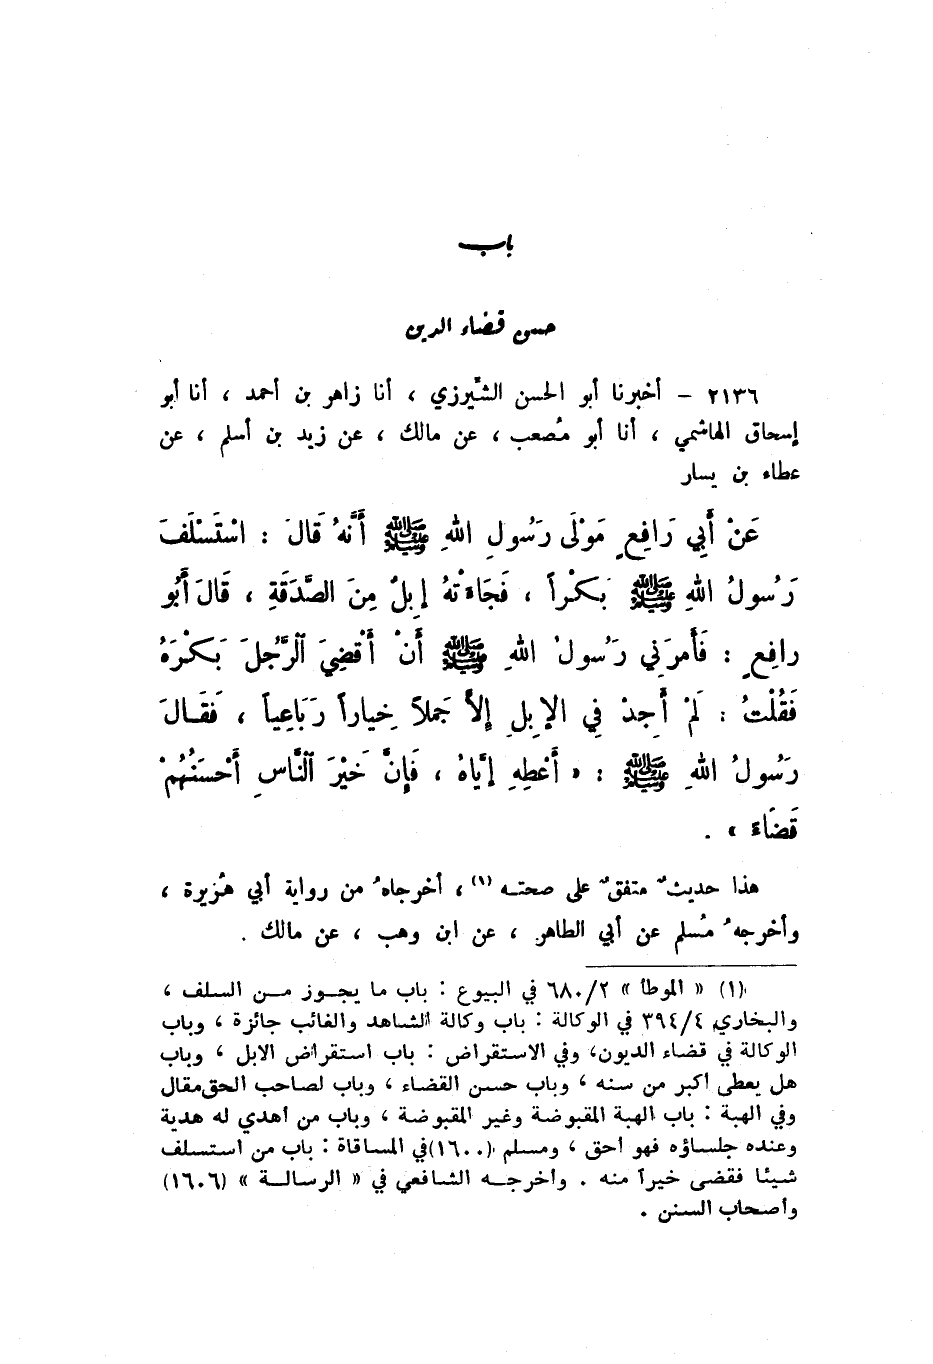 باب
حسن قضاء الدين
٢١٣٦ – أخبرنا أبو الحسن الشّيرزي ، أنا زاهر بن أحمد ، أنا أبو
إسحاق الهاشمي ، أنا أبو مُصعب ، عن مالك ، عن زيد بن أسلم ، عن
عطاء بن يسار
عَنْ أَبِي رَافِعٍ مَوْلَى رَسُولِ اللهِ ﷺ أَنَّهُ قَالَ : اسْتَسْلَفَ
رَسُولُ اللهِ ﷺ بَكْراً ، فَجَاءَتْهُ إِبلٌ مِنَ الصَّدَقَةِ ، قَالَ أَبُو
رافِعٍ : فَأَمرَنِي رَسُولُ اللهِ ﷺ أَنْ أَقْضِيَ الرَّجُلَ بَكْرَهُ
فَقُلْتُ : لَمْ أَجِدْ فِي الإِبِلِ إِلاَّ جَمَلاً خِياراً رَبَاعِياً ، فَقَـالَ
رَسُولُ اللهِ ﷺ : « أَعْطِهِ إِيَّاهُ ، فَإِنَّ خَيْرَ النَّاسِ أَحْسَنُهُمْ
قَضَاءً » .
هذا حديثٌ متفقٌ على صحتـه (١) ، أخرجاهُ من رواية أبي هُريرة ،
وأخرجهُ مُسلم عن أبي الطاهر ، عن ابن وهب ، عن مالك .
(١) « الموطأ » ٦٨٠/٢ في البيوع : باب ما يجـوز مـن السـلف ،
والبخاري ٣٩٤/٤ في الوكالة : باب وكالة الشاهد والغائب جائزة ، وباب
الوكالة في قضاء الديون، وفي الاستقراض : باب استقراض الابل ، وباب
هل يعطى أكبر من سنه ، وباب حسن القضاء ، وباب لصاحب الحق مقال
وفي الهبة : باب الهبة المقبوضة وغير المقبوضة ، وباب من أهدي له هدية
وعنده جلسـاؤه فهو أحق ، ومسلم (١٦٠٠) في المساقاة : باب من استسلف
شيئا فقضى خيراً منه . وأخرجـه الشافعي في « الرسالـة » (١٦٠٦)
وأصحاب السنن .